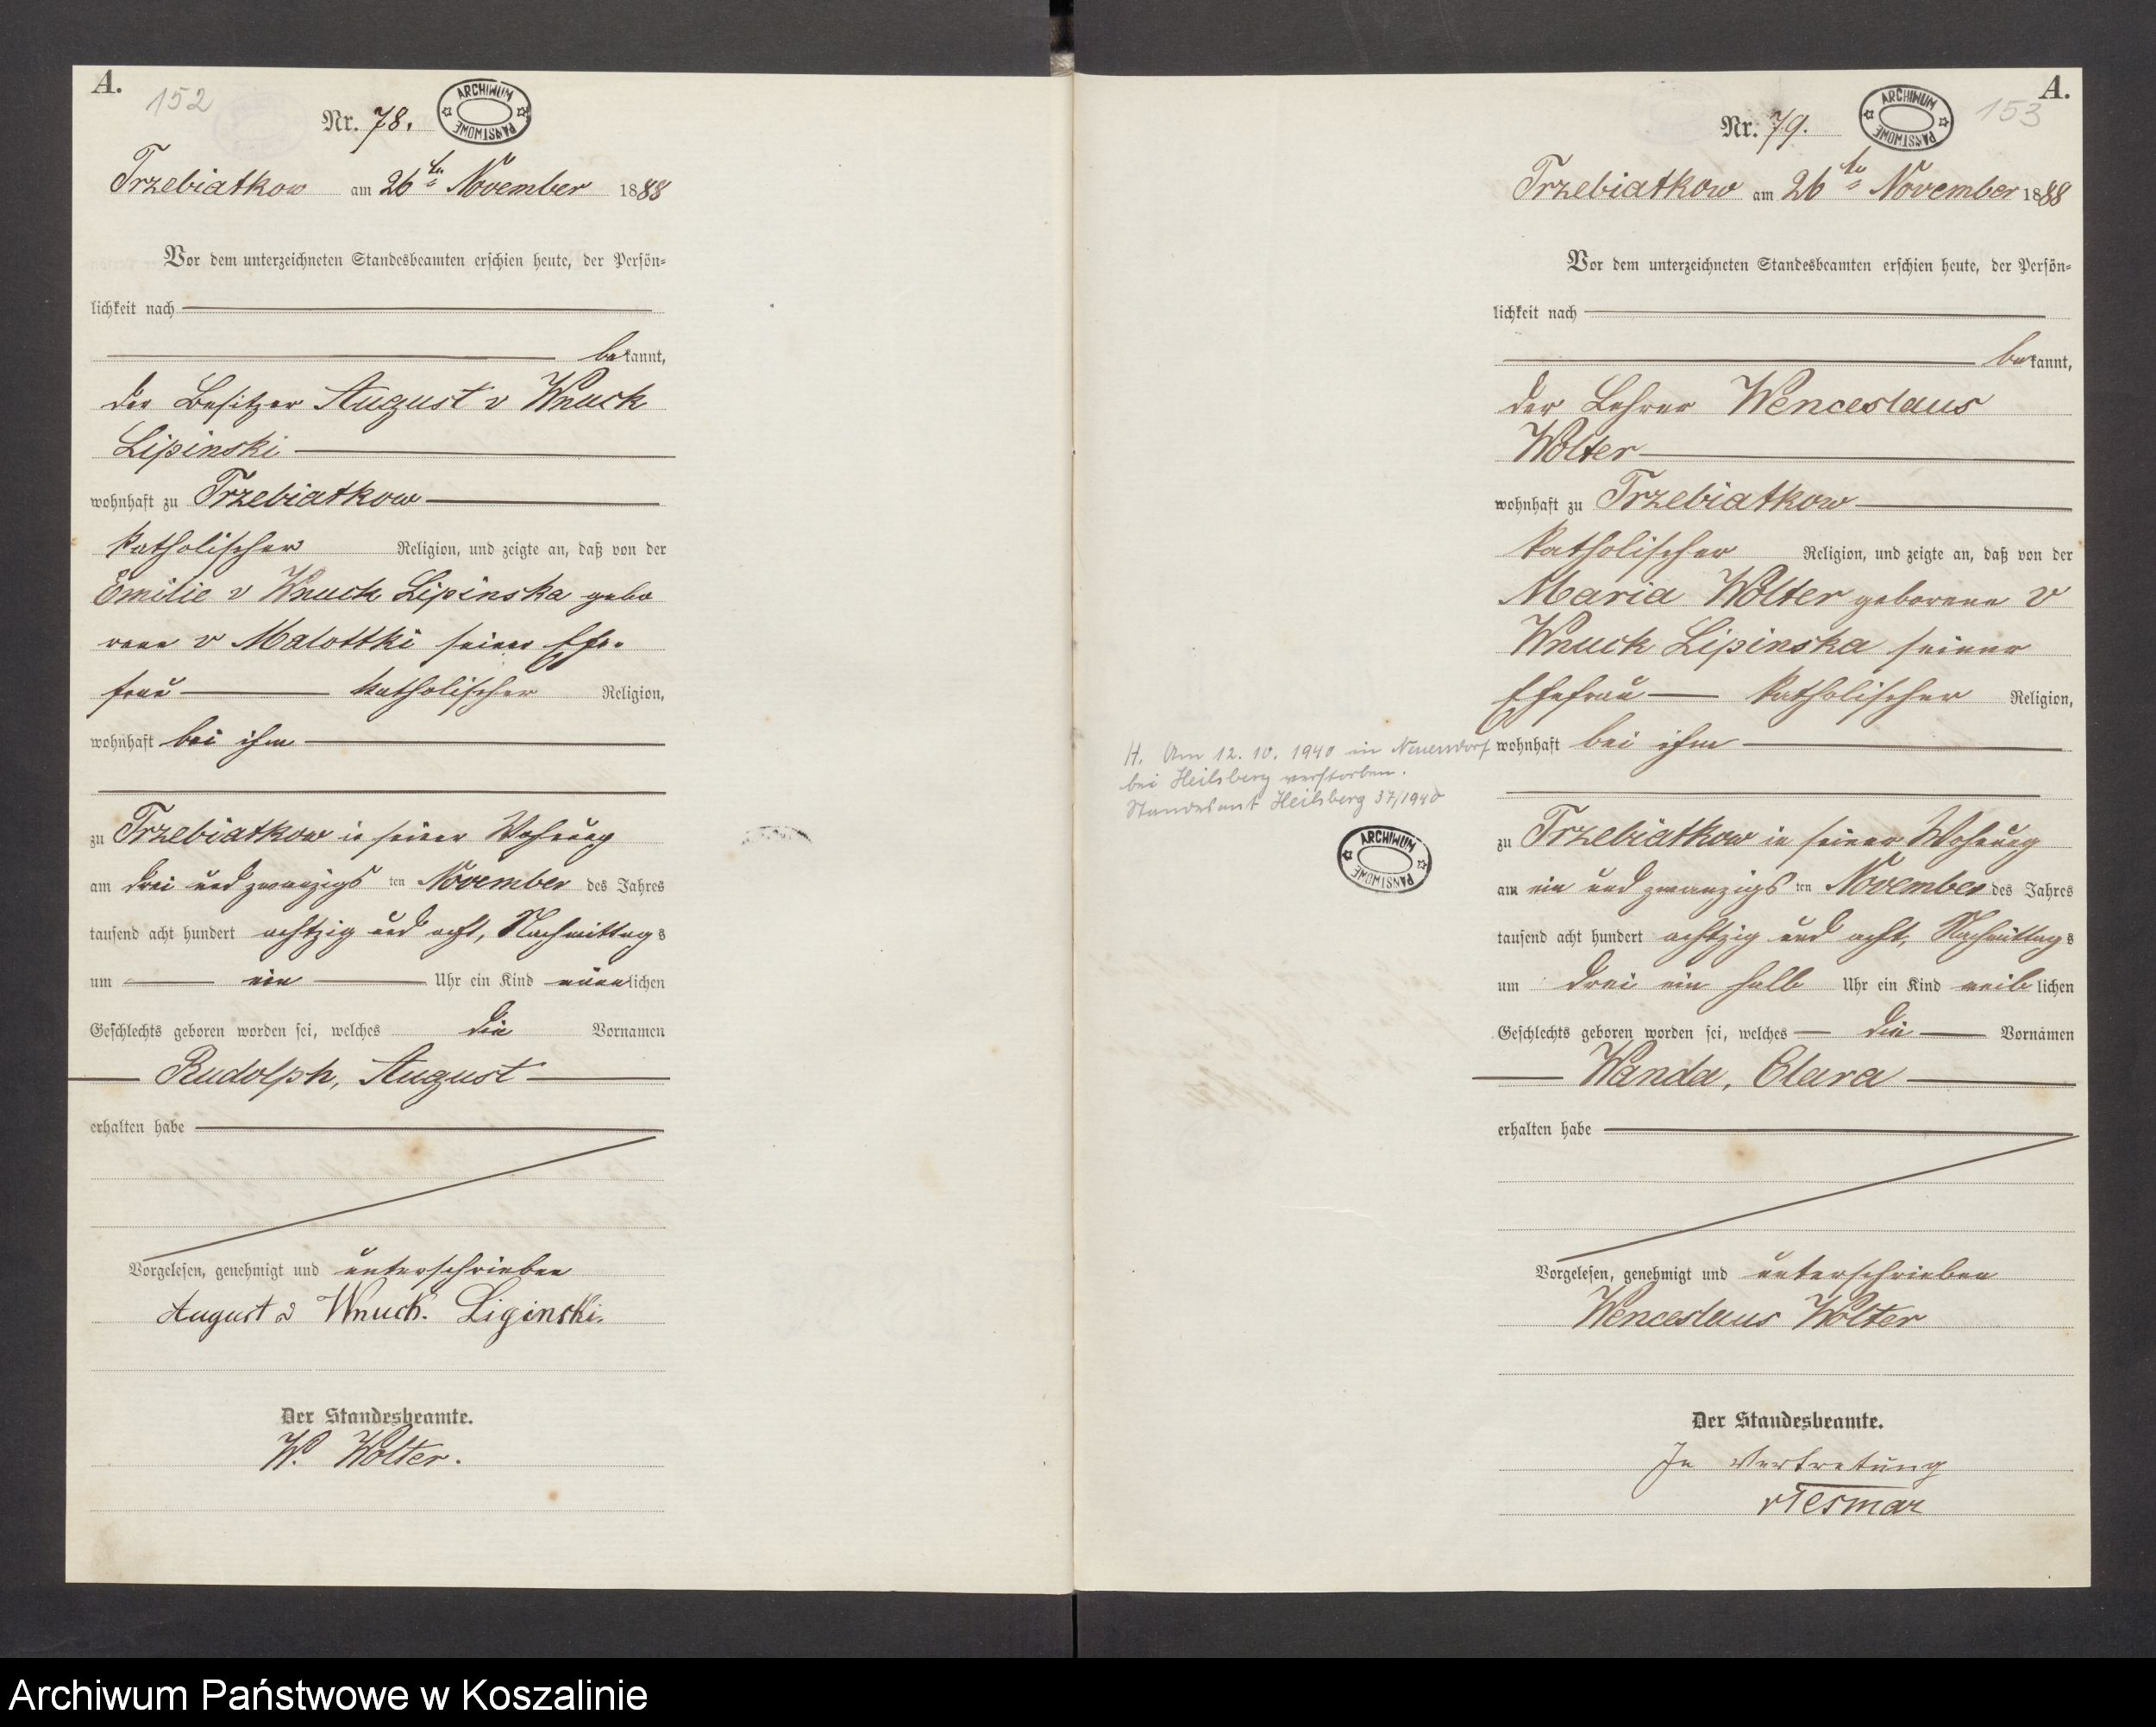 A.
152
Nr. 78.
ARCHIWUM PAŃSTWOWE
Trzebiatkow am 26ten November 1888
Vor dem unterzeichneten Standesbeamten erschien heute, der Persön-
lichkeit nach
bekannt,
der Besitzer August v Wnuck
Lipinski
wohnhaft zu Trzebiatkow
katholischer Religion, und zeigte an, daß von der
Emilie v Wnuck Lipinska gebo
rene v Malottki seiner Ehe-
frau katholischer Religion,
wohnhaft bei ihm
zu Trzebiatkow in seiner Wohnung
am drei und zwanzigs ten November des Jahres
tausend acht hundert achtzig und acht, Nachmittags
um ein Uhr ein Kind männlichen
Geschlechts geboren worden sei, welches die Vornamen
Rudolph, August
erhalten habe
Vorgelesen, genehmigt und unterschrieben
August v Wnuck. Liginski.
Der Standesbeamte.
W. Wolter.
A.
153
Nr. 79.
ARCHIWUM PAŃSTWOWE
Trzebiatkow am 26ten November 1888
Vor dem unterzeichneten Standesbeamten erschien heute, der Persön-
lichkeit nach
bekannt,
der Lehrer Wenceslaus
Wolter
wohnhaft zu Trzebiatkow
katholischer Religion, und zeigte an, daß von der
Maria Wolter geborene v
Wnuck Lipinska seiner
Ehefrau katholischer Religion,
wohnhaft bei ihm
H. Am 12. 10. 1940 in Neuendorf
bei Heilsberg verstorben.
Standesamt Heilsberg 37/1940
ARCHIWUM PAŃSTWOWE
zu Trzebiatkow in seiner Wohnung
am ein und zwanzigs ten November des Jahres
tausend acht hundert achtzig und acht, Nachmittags
um drei ein halb Uhr ein Kind weiblichen
Geschlechts geboren worden sei, welches die Vornamen
Wanda, Clara
erhalten habe
Vorgelesen, genehmigt und unterschrieben
Wenceslaus Wolter
Der Standesbeamte.
In Vertretung
vTesmar
Archiwum Państwowe w Koszalinie